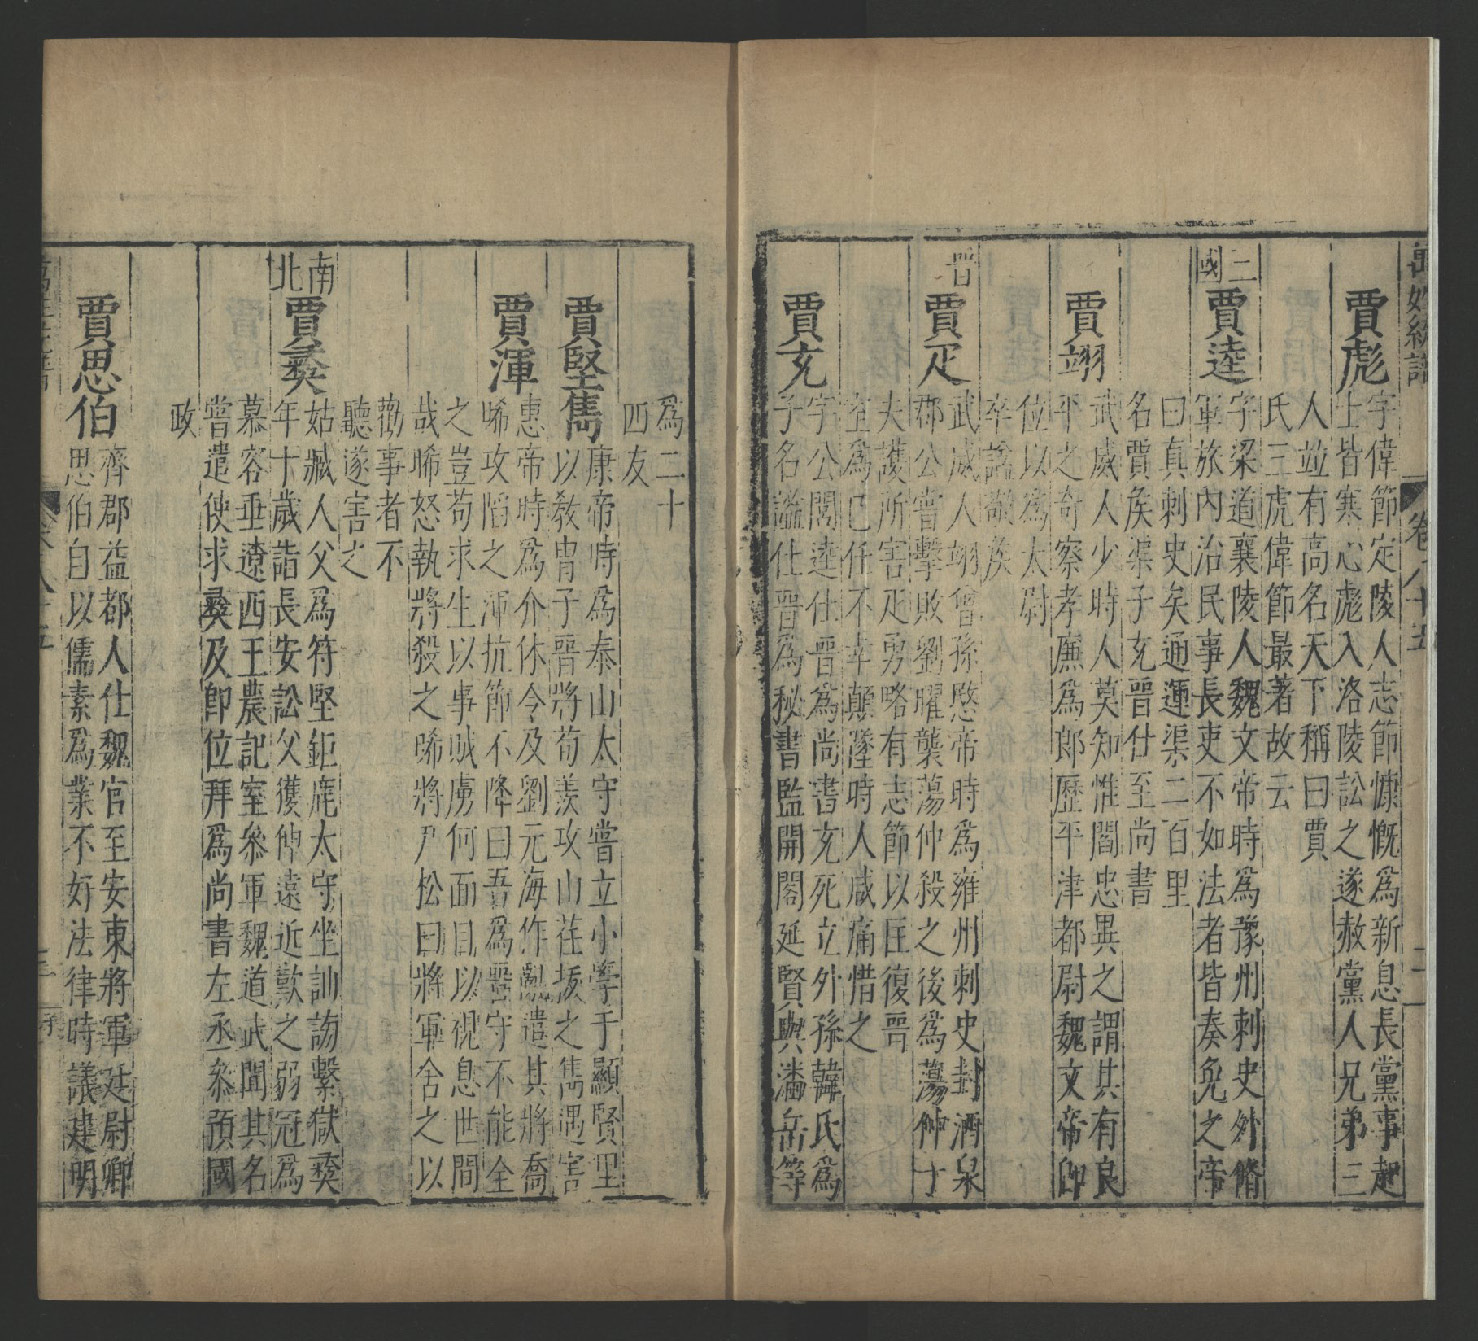 萬姓統譜 卷八十五
賈彪
字偉節定陵人志節慷慨爲新息長黨事起
士皆寒心彪入洛陵訟之遂赦黨人兄弟三
人並有高名天下稱曰賈
氏三虎偉節最著故云
三國
賈逵
字梁道襄陵人魏文帝時爲豫州刺史外脩
軍旅內治民事長吏不如法者皆奏免之帝
曰真刺史矣通運渠二百里
名賈矦渠子充晉仕至尚書
賈翊
武威人少時人莫知惟閻忠異之謂其有良
平之奇察孝廉爲郎歷平津都尉魏文帝卽
位以爲太尉
卒諡肅矦
晉
賈疋
武威人翊曾孫愍帝時爲雍州刺史封酒泉
郡公嘗擊敗劉曜襲蕩仲殺之後爲蕩仲子
夫護所害疋勇略有志節以匡復晉
室爲已任不幸顛墜時人咸痛惜之
賈充
字公閭逵仕晉爲尚書充死立外孫韓氏爲
子名謐仕晉爲秘書監開閣延賢與潘岳等
爲二十
四友
賈堅雋
康帝時爲泰山太守嘗立小學于顯賢里
以敎胄子晉將荀羨攻山茌拔之雋遇害
賈渾
惠帝時爲介休令及劉元海作亂遣其將喬
晞攻陷之渾抗節不降曰吾爲晉守不能全
之豈苟求生以事賊虜何面目以視息世間
哉晞怒執將殺之晞將尹松曰將軍舍之以
勸事者不
聽遂害之
南北
賈彝
姑臧人父爲符堅鉅鹿太守坐訕謗繫獄彝
年十歲詣長安訟父獲伸遠近歎之弱冠爲
慕容垂遼西王農記室叅軍魏道武聞其名
嘗遣使求彝及卽位拜爲尚書左丞叅預國
政
賈思伯
齊郡益都人仕魏官至安東將軍廷尉卿
思伯自以儒素爲業不好法律時議建明